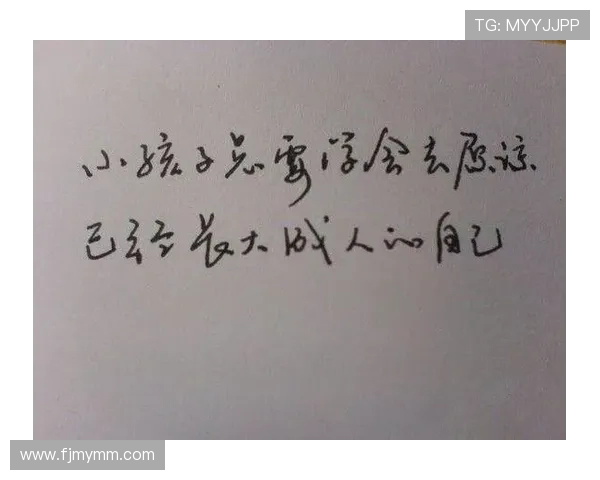 TG: MYYJJPP
小孩子只要学会去原谅
已经长大成人的自己
www.fjmymm.com